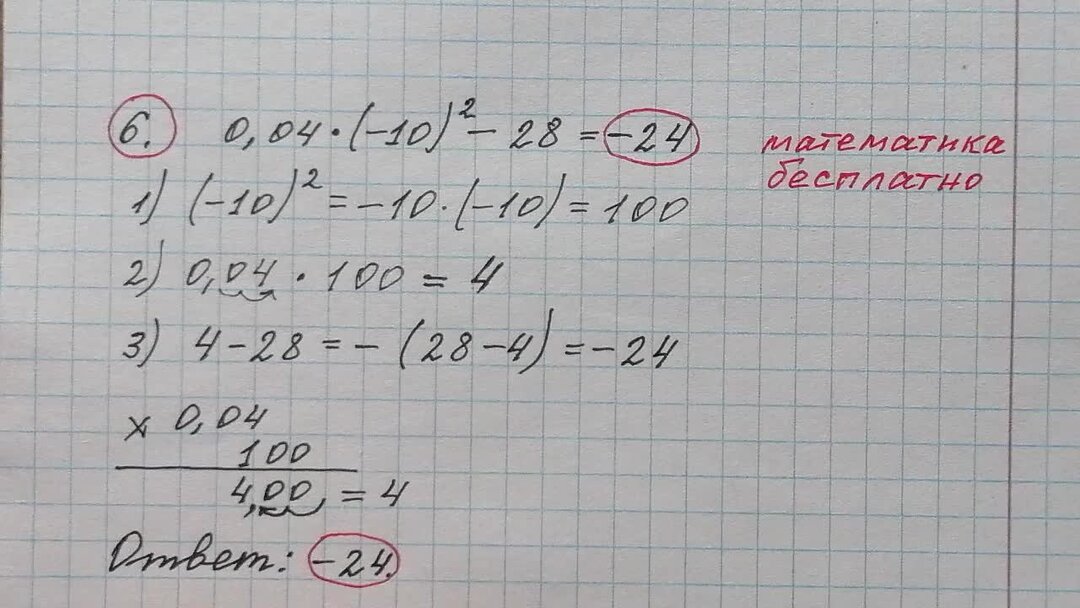 6. 0,04 · (-10)² - 28 = -24
математика
бесплатно
1) (-10)² = -10 · (-10) = 100
2) 0,04 · 100 = 4
3) 4 - 28 = - (28 - 4) = -24
× 0,04
100
4,00 = 4
Ответ: -24.